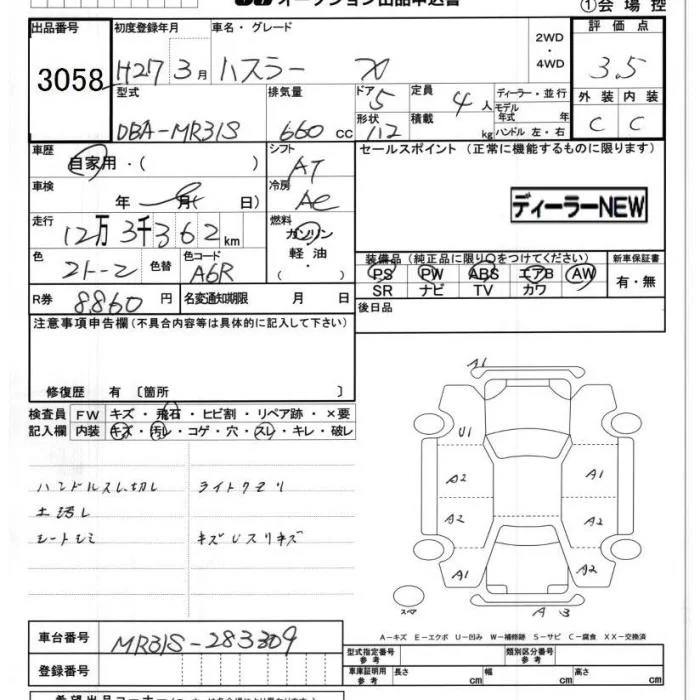 オークション出品申込書
①会場控
出品番号 初度登録年月 車名・グレード 2WD・4WD 評価点
3058 H27 3月 ハスラー X 3.5
型式 排気量 ドア 5 定員 4人 ディーラー・並行 外装 内装
DBA-MR31S 660cc 形状 112 積載 kg モデル年式 年 ハンドル 左・右 C C
車歴 シフト セールスポイント (正常に機能するものに限ります)
自家用・( ) AT
車検 冷房
年 月( 日) AC ディーラーNEW
走行 燃料
12万3千362km ガソリン・軽油・
色 色替 色コード 装備品(純正品に限り○をつけてください) 新車保証書
A6R PS PW ABS エアB AW 有・無
SR ナビ TV カワ
R券 8860円 名変通知期限 月 日 後日品
注意事項申告欄(不具合内容等は具体的に記入して下さい)
修復歴 有〔箇所 〕
検査員 FW キズ・飛石・ヒビ割・リペア跡・×要
記入欄 内装 キズ・汚レ・コゲ・穴・スレ・キレ・破レ
A1
U1
A2 A1
A2 A2
A1 A2
スペア
ハンドルスレ切レ ライトクモリ
土汚レ
シートシミ キズUスリキズ
A-キズ E-エクボ U-凹み W-補修跡 S-サビ C-腐食 XX-交換済
車台番号 MR31S-283309
型式指定番号 参考 類別区分番号 参考
登録番号
車庫証明用 参考 長さ cm 幅 cm 高さ cm